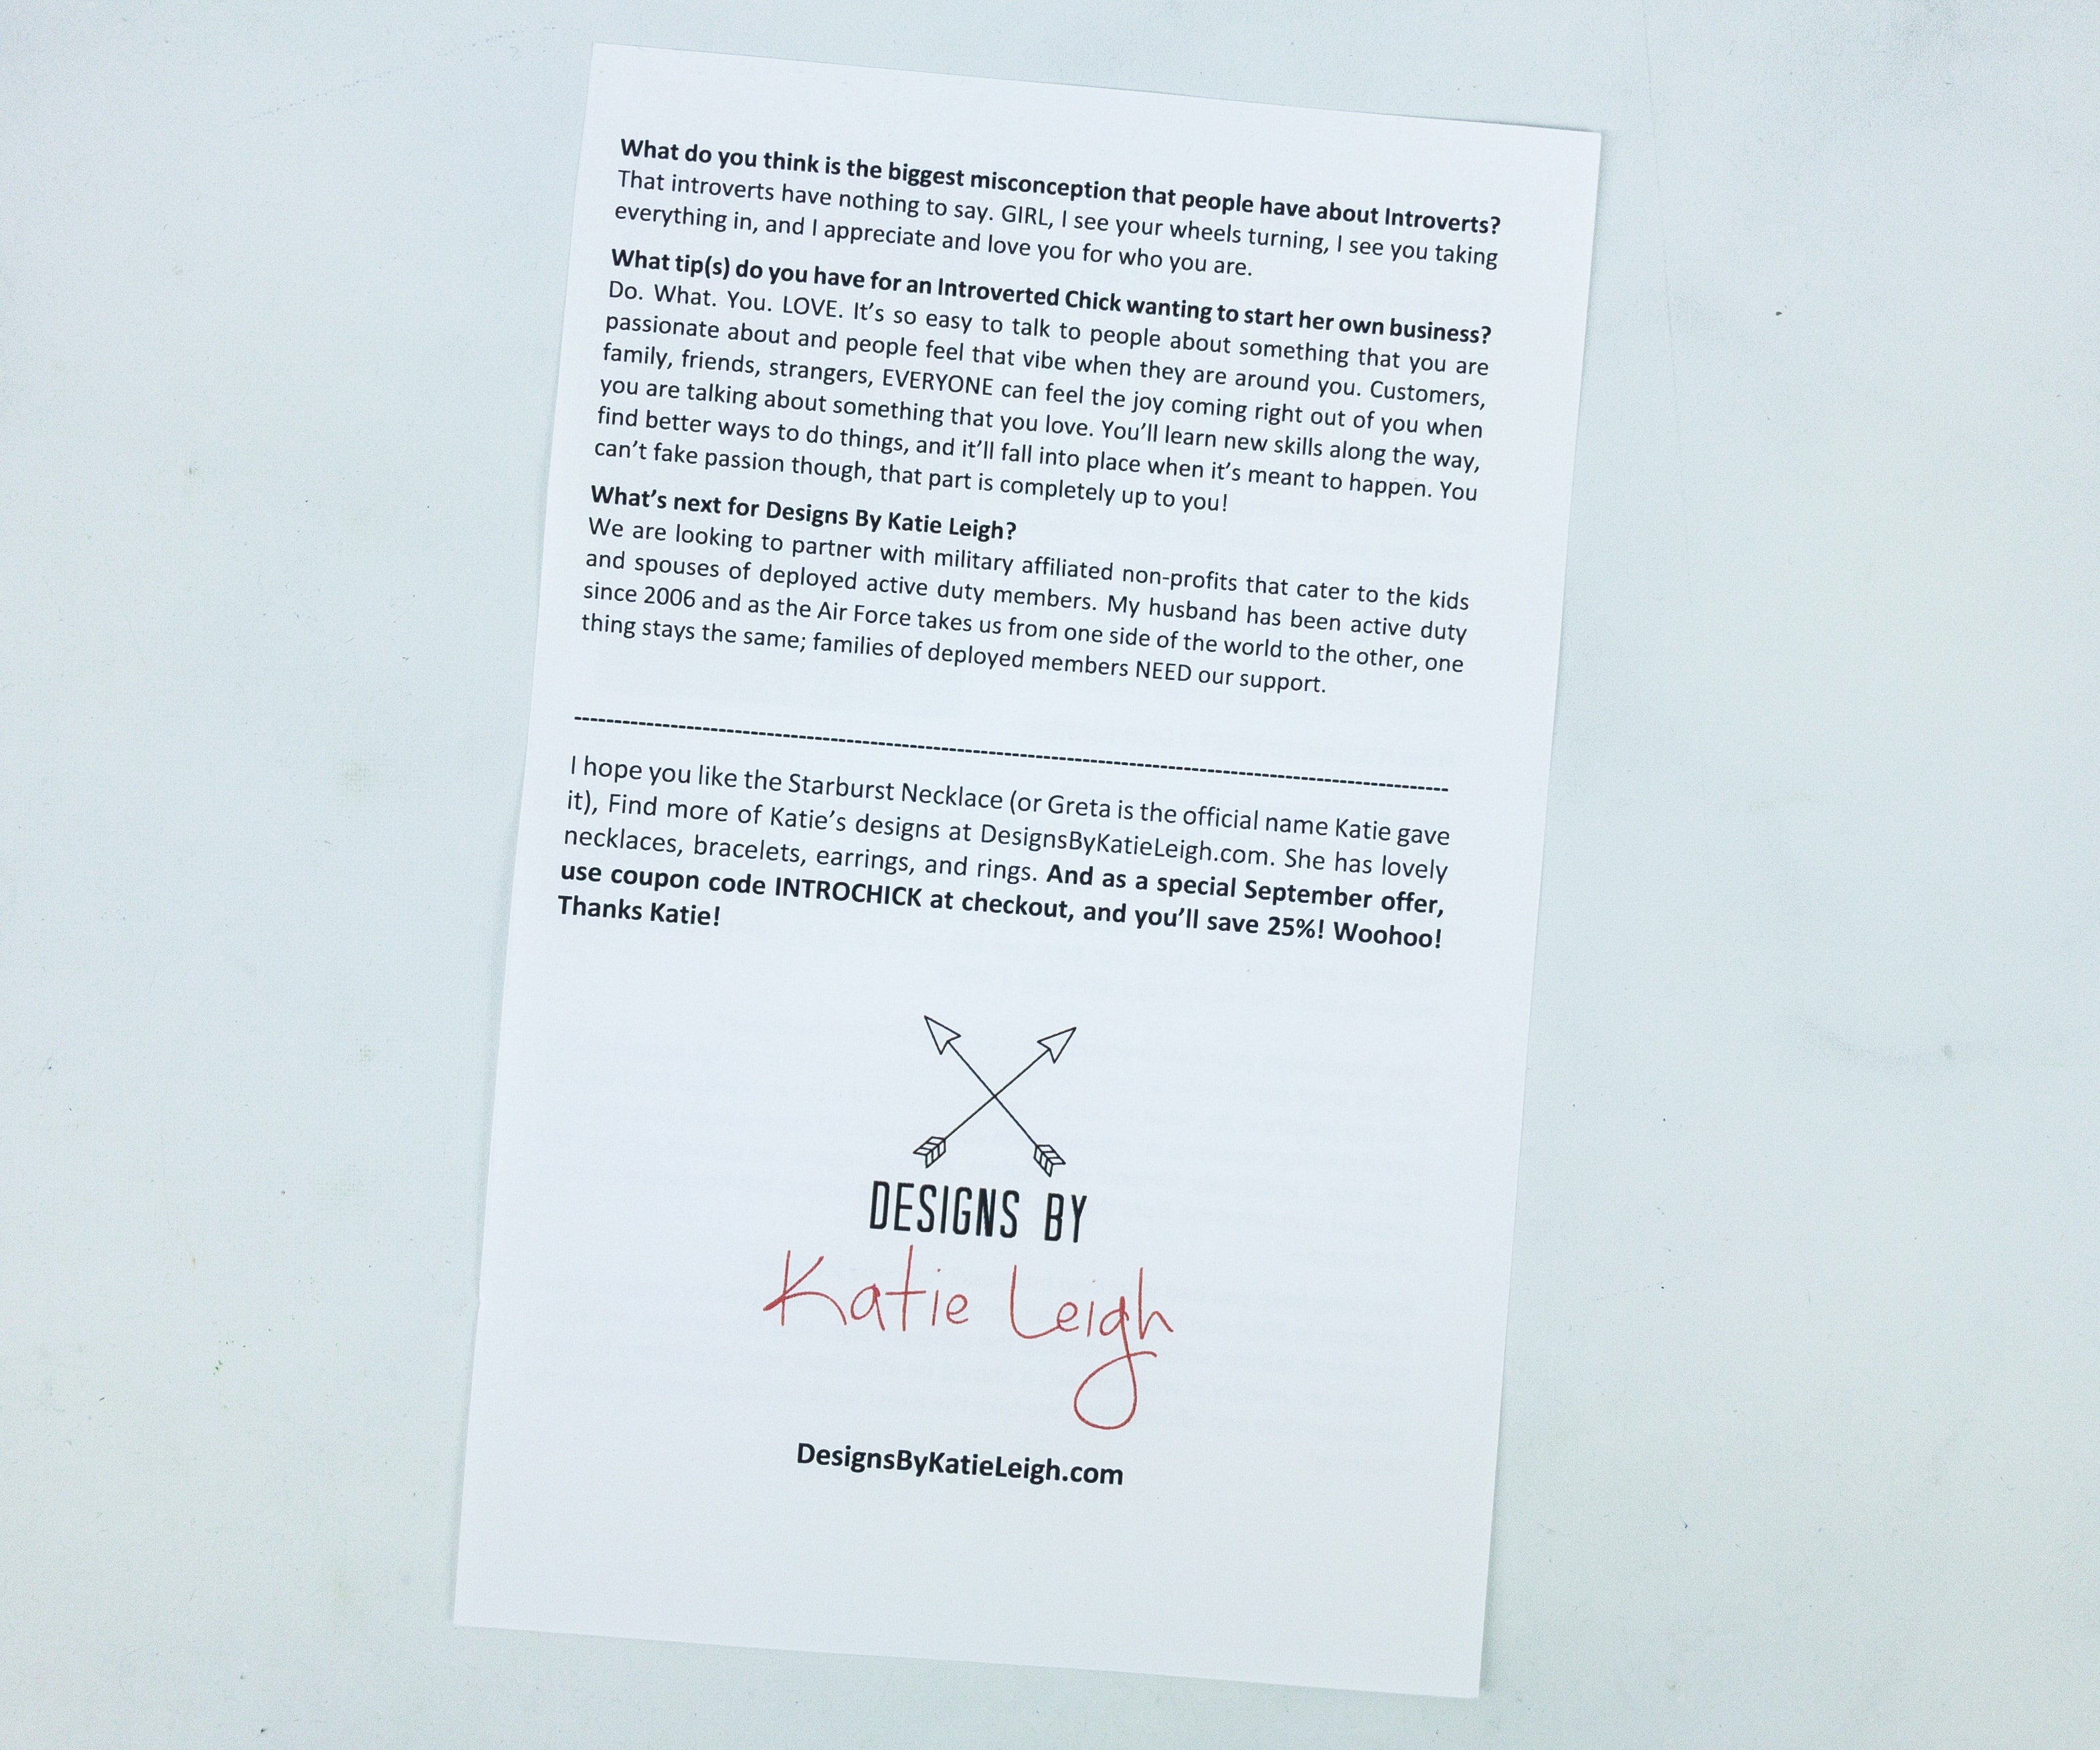 What do you think is the biggest misconception that people have about Introverts?
That introverts have nothing to say. GIRL, I see your wheels turning, I see you taking
everything in, and I appreciate and love you for who you are.
What tip(s) do you have for an Introverted Chick wanting to start her own business?
Do. What. You. LOVE. It's so easy to talk to people about something that you are
passionate about and people feel that vibe when they are around you. Customers,
family, friends, strangers, EVERYONE can feel the joy coming right out of you when
you are talking about something that you love. You'll learn new skills along the way,
find better ways to do things, and it'll fall into place when it's meant to happen. You
can't fake passion though, that part is completely up to you!
What's next for Designs By Katie Leigh?
We are looking to partner with military affiliated non-profits that cater to the kids
and spouses of deployed active duty members. My husband has been active duty
since 2006 and as the Air Force takes us from one side of the world to the other, one
thing stays the same; families of deployed members NEED our support.
I hope you like the Starburst Necklace (or Greta is the official name Katie gave
it), Find more of Katie's designs at DesignsByKatieLeigh.com. She has lovely
necklaces, bracelets, earrings, and rings. And as a special September offer,
use coupon code INTROCHICK at checkout, and you'll save 25%! Woohoo!
Thanks Katie!
DESIGNS BY
Katie Leigh
DesignsByKatieLeigh.com